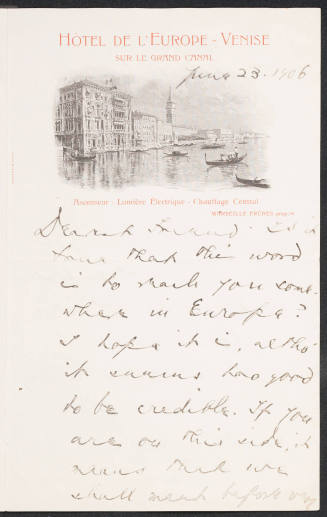 HÔTEL DE L'EUROPE - VENISE
SUR LE GRAND CANAL
June 23. 1906
Ascenseur - Lumière Electrique - Chauffage Central
MARSEILLE FRÈRES
Dearest Friend: is it
true that this word
is to reach you some-
where in Europe?
I hope it is, altho'
it seems too good
to be credible. If you
are on this side, it
means that we
shall meet before very